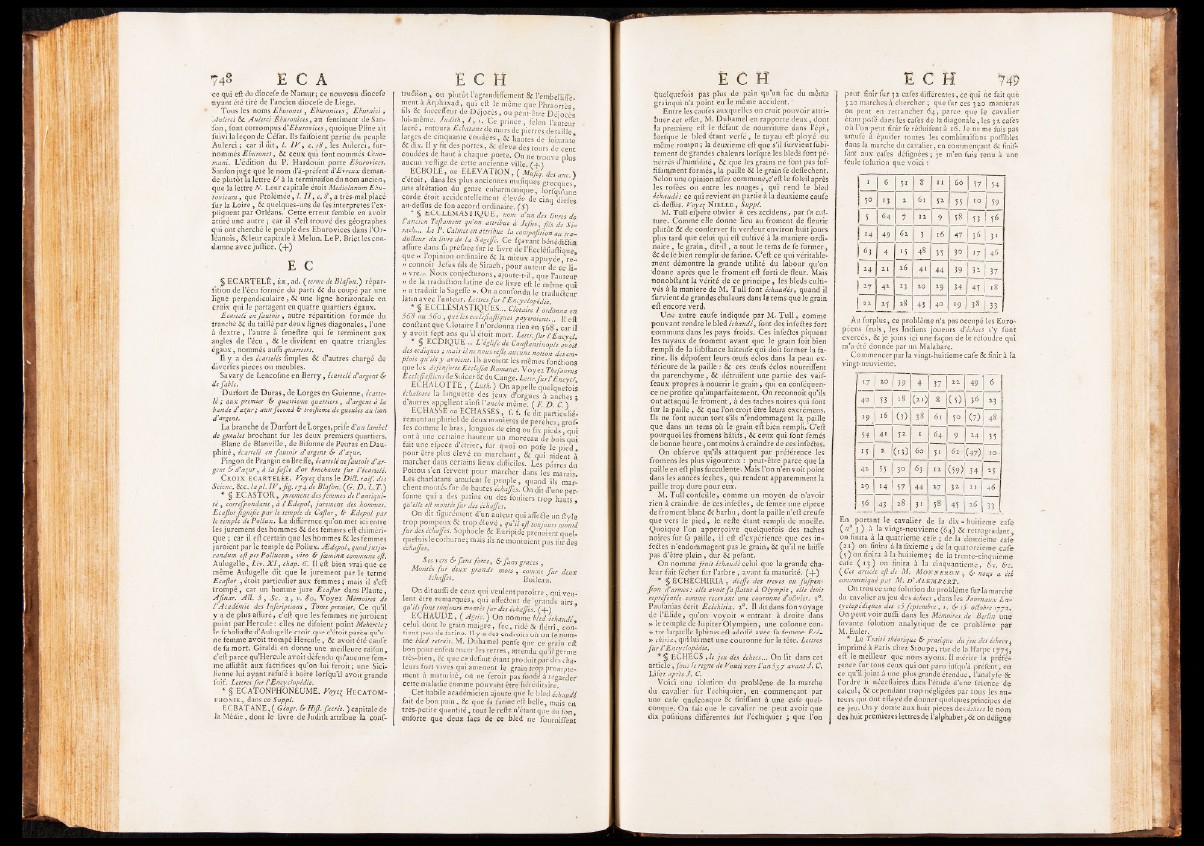 748 E C A
ce qui est du diocese de Namur; ce nouveau diocese
ayant été tiré de l'ancien diocese de Liege.
Tous les noms Eburones, Eburonices, Eburaici,
Aulerci & Aulerci Eburovices, au sentiment de San-
son, sont corrompus d'Eburovices, quoique Pline ait
suivi la leçon de César. Ils faisoient partie du peuple
Aulerci; car il dit, l. IV, c. 18, les Aulerci, sur-
nommés Eburones, & ceux qui sont nommés Ceno-
mani. L'édition du P. Hardouin porte Eburovices.
Sanson juge que le nom d'à-présent d'Evreux deman-
de plutôt la lettre U à la terminaison du nom ancien,
que la lettre N. Leur capitale étoit Mediolanum Ebu-
rovicum, que Ptolemée, l. II, c. 8, a très-mal placé
sur la Loire, & quelques-uns de ses interpretes l'ex-
pliquent par Orléans. Cette erreur semble en avoir
attiré une autre; car il s'est trouvé des géographes
qui ont cherché le peuple des Eburovices dans l'Or-
léanois, & leur capitale à Melun. Le P. Briet les con-
damne avec justice. (+)
E C
§ ECARTELÉ, ÉE, adj. (terme de Blason.) répar-
tition de l'écu formée du parti & du coupé par une
ligne perpendiculaire, & une ligne horizontale en
croix qui le partagent en quatre quartiers égaux.
Ecartelé en sautoir, autre répartition formée du
tranché & du taillé par deux lignes diagonales, l'une
à dextre, l'autre à senestre qui se terminent aux
angles de l'écu, & le divisent en quatre triangles
égaux, nommés aussi quartiers.
Il y a des écartelés simples & d'autres chargé de
diverses pieces ou meubles.
Savary de Lencosme en Berry, écartelé d'argent &
de sable.
Durfort de Duras, de Lorges en Guienne, écarte-
lé; aux premier & quatrieme quartiers, d'argent à la
bande d'azur; aux second & troisieme de gueules au lion
d'argent.
La branche de Durfort de Lorges, prise d'un lambel
de gueules brochant sur les deux premiers quartiers.
Blanc de Blanville, de Bisonne de Pouras en Dau-
phiné, écartelé en sautoir d'argent & d'azur.
Pingon de Prangin en Bresse, écartelé au sautoir d'ar-
gent & d'azur, à la fasce d'or brochante sur l'écartelé.
CROIX ECARTELÉE. Voyez dans le Dict. rais. des
Scienc. &c. la pl. IV, fig. 174 de Blason. (G. D. L. T.)
* § ECASTOR, jurement des femmes de l'antiqui-
té, correspondant, à l'Edepol, jurement des hommes.
Ecastor signifie par le temple de Castor, & Edepol par
le temple de Pollux. La différence qu'on met ici entre
les juremens des hommes & des femmes est chiméri-
que; car il est certain que les hommes & les femmes
juroient par le temple de Pollux. Ædepol, quod jusju-
randum est per Pollucem, viro & fœminæ commune est.
Aulugelle, Liv. XI, chap. 6. Il est bien vrai que ce
même Aulugelle dit que le jurement par le terme
Ecastor, étoit particulier aux femmes; mais il s'est
trompé, car un homme jure Ecastor dans Plaute,
Asinar. Act. 5, Sc. 2, v. 80. Voyez Mémoires de
l'Académie des Inscriptions, Tome premier. Ce qu'il
y a de plus assuré, c'est que les femmes ne juroient
point par Hercule: elles ne disoient point Mehercle;
le scholiaste d'Aulugelle croit que c'étoit parce qu'u-
ne femme avoit trompé Hercule, & avoit été cause
de sa mort. Giraldi en donne une meilleure raison,
c'est parce qu'Hercule avoit défendu qu'aucune fem-
me assistât aux sacrifices qu'on lui feroit; une Sici-
lienne lui ayant refusé à boire lorsqu'il avoit grande
soif. Lettres sur l'Encyclopédie.
* § ECATONPHONÉUME. Voyez HECATOM-
PHONIE, dans ce Suppl.
ECBATANE, (Géogr. & Hist. sacrée.) capitale de
la Médie, dont le livre de Judith attribue la cons-
E C H
truction, ou plutôt l'agrandissement & l'embellisse-
ment à Arphaxad, qui est le même que Phraortès,
fils & successeur de Déjocès, ou peut-être Déjocès
lui-même. Judith, I, 1. Ce prince, selon l'auteur
sacré, entoura Echatane de murs de pierres de taille,
larges de cinquante coudées, & hautes de soixante
& dix. Il y fit des portes, & éleva des tours de cent
coudées de haut à chaque porte. On ne trouve plus
aucun vestige de cette ancienne ville. (+)
ECBOLÉ, ou ÉLÉVATION, (Musiq. des anc.)
c'étoit, dans les plus anciennes musiques grecques,
une altération du genre enharmonique, lorsqu'une
corde étoit accidentellement élevée de cinq dieses
au-dessus de son accord ordinaire. (S)
* § ECCLÉSIASTIQUE, nom d'un des livres de
l'ancien Testament qu'on attribue à Jesus, fils de Si-
rach... Le P. Calmet en attribue la composition au tra-
ducteur du livre de la Sagesse. Ce sçavant bénédictin
assure dans sa préface sur le livre de l'Ecclésiastique,
que « l'opinion ordinaire & la mieux appuyée, re-
» connoît Jesus fils de Sirach, pour auteur de ce li-
» vre... Nous conjecturons, ajoute-t-il, que l'auteur
» de la traduction latine de ce livre est le même qui
» a traduit la Sagesse ». On a confondu le traducteur
latin avec l'auteur. Lettres sur l'Encyclopédie.
* § ECCLÉSIASTIQUES... Clotaire I ordonna en
568 ou 560, que les ecclésiastiques payeroient... Il est
constant que Clotaire I n'ordonna rien en 568, car il
y avoit sept ans qu'il étoit mort. Lettr. sur l'Encycl.
* § ECDIQUE... L'église de Constantinople avoit
des ecdiques; mais il ne nous reste aucune notion des em-
plois qu'ils y avoient. Ils avoient les mêmes fonctions
que les defensores Ecclesiæ Romanæ. Voyez Thesaurus
Ecclesiasticus de Suicer & du Cange. Lettr. sur l'Encycl.
ECHALOTTE, (Luth.) On appelle quelquefois
échalotte la languette des jeux d'orgues à anches;
d'autres appellent ainsi l'anche même. (F. D. C.)
ECHASSE ou ECHASSES, s. f. se dit particulié-
rement au pluriel de deux manieres de perches, gros-
ses comme le bras, longues de cinq ou six pieds, qui
ont à une certaine hauteur un morceau de bois qui
fait une espece d'étrier, sur quoi on pose le pied,
pour être plus élevé en marchant, & qui aident à
marcher dans certains lieux difficiles. Les pâtres du
Poitou s'en servent pour marcher dans les marais.
Les charlatans amusent le peuple, quand ils mar-
chent montés sur de hautes échasses. On dit d'une per-
sonne qui a des patins ou des souliers trop hauts,
qu'elle est montée sur des échasses.
On dit figurément d'un auteur qui affecte un style
trop pompeux & trop élevé, qu'il est toujours monté
sur des échasses. Sophocle & Euripide prenoient quel-
quefois le cothurne; mais ils ne montoient pas sur des
échasses.
Ses vers & sans force, & sans graces,
Montés sur deux grands mots, comme sur deux
échasses. Boileau.
On dit aussi de ceux qui veulent paroître, qui veu-
lent être remarqués, qui affectent de grands airs,
qu'ils sont toujours montés sur des échasses. (+)
ECHAUDÉ, (Agric.) On nomme bled échaudé,
celui dont le grain maigre, sec, ridé & flétri, con-
tient peu de farine. Il y a des endroits où on le nom-
me bled retrait. M. Duhamel pense que ce grain est
bon pour ensemencer les terres, attendu qu'il germe
très-bien, & que ce défaut étant produit par des cha-
leurs fort vives qui amenent le grain trop prompte-
ment à maturité, on ne seroit pas fondé à regarder
cette maladie comme pouvant être héréditaire.
Cet habile académicien ajoute que le bled échaudé
fait de bon pain, & que sa farine est belle, mais en
très-petite quantité, tout le reste n'étant que du son,
ensorte que deux sacs de ce bled ne fournissent
E C H
quelquefois pas plus de pain qu'un sac du même
grain qui n'a point eu le même accident.
Entre les causes auxquelles on croit pouvoir attri-
buer cet effet, M. Duhamel en rapporte deux, dont
la premiere est le défaut de nourriture dans l'épi,
lorsque le bled étant versé, le tuyau est ployé ou
même rompu; la deuxieme est que s'il survient subi-
tement de grandes chaleurs lorsque les bleds sont pé-
nétrés d'humidité, & que les grains ne sont pas suf-
fisamment formés, la paille & le grain se dessechent.
Selon une opinion assez commune, c'est le soleil après
les rosées ou entre les nuages, qui rend le bled
échaudé: ce qui revient en partie à la deuxieme cause
ci-dessus. Voyez NIELLE, Suppl.
M. Tull espere obvier à ces accidens, par sa cul-
ture. Comme elle donne lieu au froment de fleurir
plutôt & de conserver sa verdeur environ huit jours
plus tard que celui qui est cultivé à la maniere ordi-
naire, le grain, dit-il, a tout le tems de se former,
& de se bien remplir de farine. C'est ce qui véritable-
ment démontre la grande utilité du labour qu'on
donne après que le froment est sorti de fleur. Mais
nonobstant la vérité de ce principe, les bleds culti-
vés à la maniere de M. Tull sont échaudés, quand il
survient de grandes chaleurs dans le tems que le grain
est encore verd.
Une autre cause indiquée par M. Tull, comme
pouvant rendre le bled échaudé, sont des insectes fort
communs dans les pays froids. Ces insectes piquent
les tuyaux de froment avant que le grain soit bien
rempli de la substance laiteuse qui doit former la fa-
rine. Ils déposent leurs œufs éclos dans la peau ex-
térieure de la paille: & ces œufs éclos nourrissent
du parenchyme, & détruisent une partie des vais-
seaux propres à nourrir le grain, qui en conséquen-
ce ne profite qu'imparfaitement. On reconnoît qu'ils
ont attaqué le froment, à des taches noires qui sont
sur la paille, & que l'on croit être leurs excrémens.
Ils ne font aucun tort s'ils n'endommagent la paille
que dans un tems où le grain est bien rempli. C'est
pourquoi les fromens hâtifs, & ceux qui sont semés
de bonne heure, ont moins à craindre de ces insectes.
On observe qu'ils attaquent par préférence les
fromens les plus vigoureux: peut-être parce que la
paille en est plus succulente. Mais l'on n'en voit point
dans les années seches, qui rendent apparemment la
paille trop dure pour eux.
M. Tull conseille, comme un moyen de n'avoir
rien à craindre de ces insectes, de semer une espece
de froment blanc & barbu, dont la paille n'est creuse
que vers le pied, le reste étant rempli de moëlle.
Quoique l'on apperçoive quelquefois des taches
noires sur sa paille, il est d'expérience que ces in-
sectes n'endommagent pas le grain, & qu'il ne laisse
pas d'être plain, dur & pesant.
On nomme fruit échaudé celui que la grande cha-
leur fait sécher sur l'arbre, avant sa maturité. (+)
* § ECHECHIRIA, déesse des treves ou suspen-
sion d'armes: elle avoit sa statue à Olympie, elle étoit
représentée comme recevant une couronne d'olivier. 1°.
Pausanias écrit Ecéchiria. 2°. Il dit dans son voyage
de l'Elide, qu'on voyoit « entrant à droite dans
» le temple de Jupiter Olympien, une colonne con-
» tre laquelle Iphitus est adossé avec sa femme Ecé-
» chirie, qui lui met une couronne sur la tête. Lettres
sur l'Encyclopédie.
* § ECHECS, le jeu des échecs... On lit dans cet
article, sous le regne de Vouti vers l'an 537 avant J. C.
Lisez après J. C.
Voici une solution du problême de la marche
du cavalier sur l'echiquier, en commençant par
une case quelconque & finissant à une case quel-
conque. On sait que le cavalier ne peut avoir que
dix positions différentes sur l'echiquier; que l'on
E C H 749
peut finir sur 32 cases différentes, ce qui ne fait que
320 marches à chercher; que sur ces 320 manieres
on peut en retrancher 64, parce que le cavalier
étant posé dans les cases de la diagonale, les 32 cases
où l'on peut finir se réduisent à 16. Je ne me suis pas
amusé à épuiser toutes les combinaisons possibles
dans la marche du cavalier, en commençant & finis-
sant aux cases désignées; je m'en suis tenu à une
seule solution que voici:
1 6 51 8 11 60 57 54
50 13 2 61 52 55 10 59
5 64 7 12 9 58 53 56
14 49 62 3 16 47 36 31
63 4 15 48 35 30 17 46
24 21 26 41 44 39 32 37
27 42 23 20 29 34 45 18
22 25 28 43 40 19 38 33
Au surplus, ce problême n'a pas occupé les Euro-
péens seuls, les Indiens joueurs d'échecs s'y sont
exercés, & je joins ici une façon de le résoudre qui
m'a été donnée par un Malabare.
Commencer par la vingt-huitieme case & finir à la
vingt-neuvieme.
17 20 39 4 37 22 49 6
40 53 18 (21) 8 (5) 36 23
19 16 (3) 38 61 50 (7) 48
54 41 52 1 64 9 24 35
15 2 (13) 60 51 62 (47) 10
42 55 30 63 12 (59) 34 25
29 14 57 44 27 32 11 46
56 43 28 31 58 45 26 33
En portant le cavalier de la dix-huitieme case
(n° 3) à la vingt-neuvieme (64) & retrogradant,
on finira à la quatrieme case; de la douzieme case
(21) on finira à la sixieme; de la quatorzieme case
(5) on finira à la huitieme; de la trente-cinquieme
case (13) on finira à la cinquantieme, &c. &c.
(Cet article est de M. MONNERON, & nous a été
communiqué par M. D'ALEMBERT.
On trouve une solution du problême sur la marche
du cavalier au jeu des échecs, dans les Journaux En-
cyclopédiques des 15 septembre, 1. & 15 octobre 1772.
On peut voir aussi dans les Mémoires de Berlin une
savante solution analytique de ce problême par
M. Euler.
* Le Traité théorique & pratique du jeu des échecs,
imprimé à Paris chez Stoupe, rue de la Harpe 1775,
est le meilleur que nous ayons. Il mérite la préfé-
rence sur tous ceux qui ont paru jusqu'à présent, en
ce qu'il joint à une plus grande étendue, l'analyse &
l'ordre si nécessaires dans l'étude d'une science de
calcul, & cependant trop négligées par tous les au-
teurs qui ont essayé de donner quelques principes de
ce jeu. On y donne aux huit pieces des échecs le nom
des huit premieres lettres de l'alphabet, & on désigne